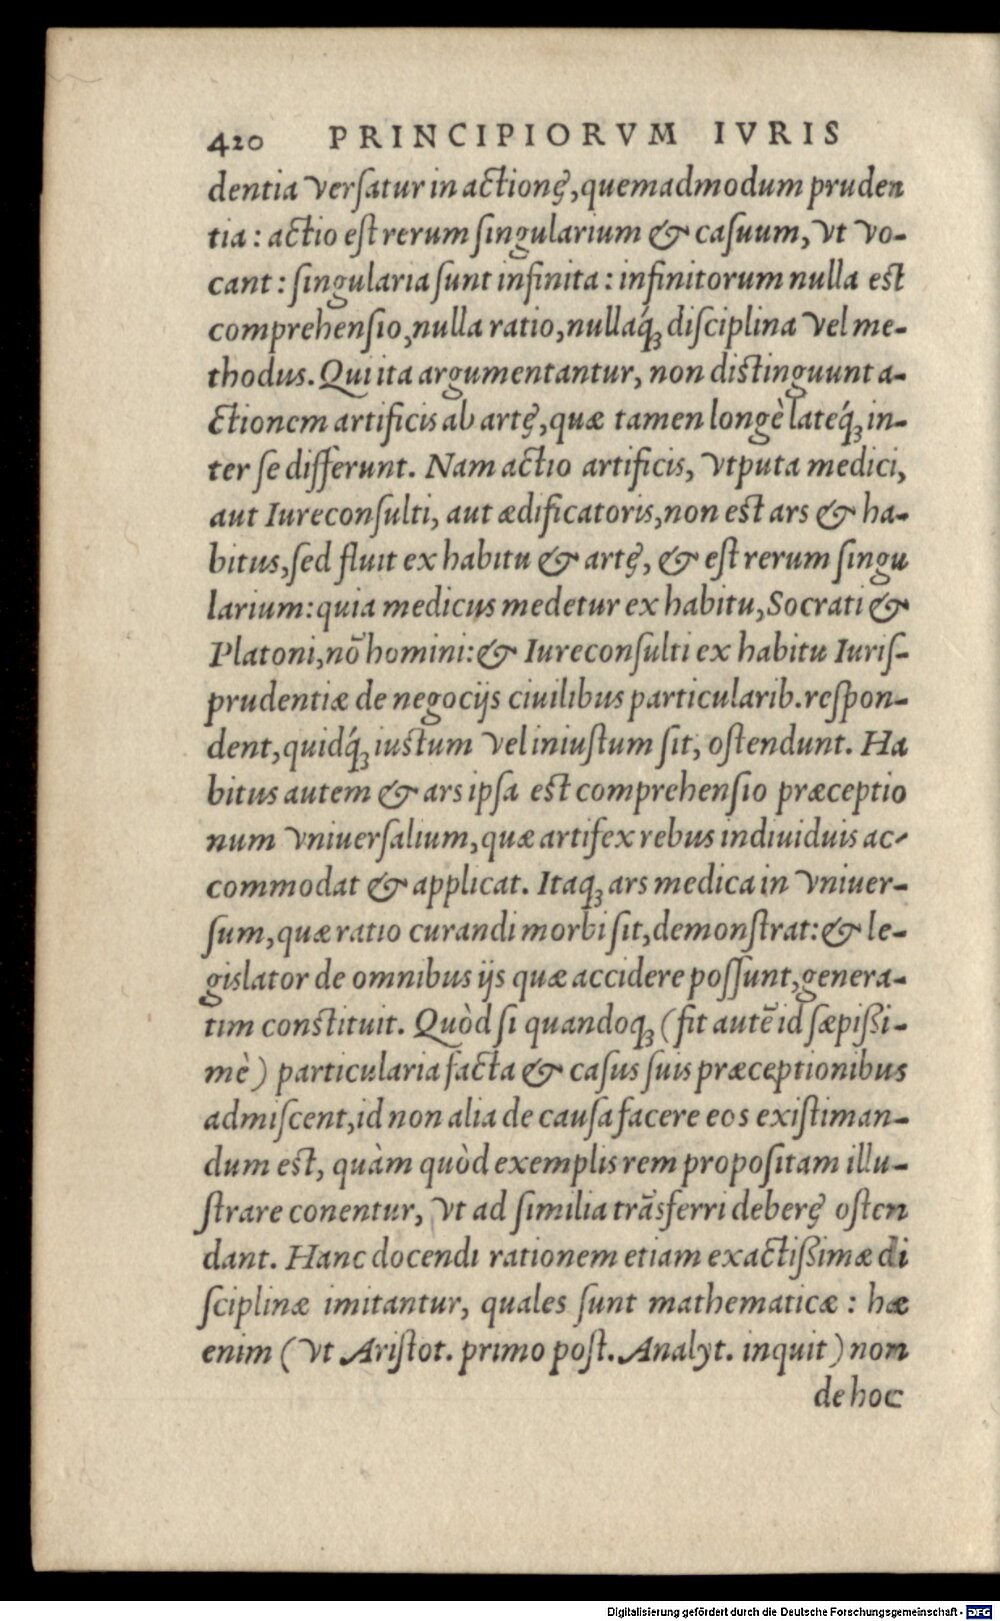 420 PRINCIPIORVM IVRIS
dentia verſatur in actionę, quemadmodum pruden
tia: actio eſt rerum ſingularium & caſuum, vt vo-
cant: ſingularia ſunt infinita: infinitorum nulla eſt
comprehenſio, nulla ratio, nullaq́ꝫ diſciplina vel me-
thodus. Qui ita argumentantur, non diſtinguunt a-
ctionem artificis ab artę, quæ tamen longè lateq́ꝫ in-
ter ſe differunt. Nam actio artificis, vtputa medici,
aut Iureconſulti, aut ædificatoris, non eſt ars & ha-
bitus, ſed fluit ex habitu & artę, & eſt rerum ſingu
larium: quia medicus medetur ex habitu, Socrati &
Platoni, nō homini: & Iureconſulti ex habitu Iuriſ-
prudentiæ de negocijs ciuilibus particularib. reſpon-
dent, quidq́ꝫ iuſtum vel iniuſtum ſit, oſtendunt. Ha
bitus autem & ars ipſa eſt comprehenſio præceptio
num vniuerſalium, quæ artifex rebus indiuiduis ac-
commodat & applicat. Itaqꝫ ars medica in vniuer-
ſum, quæ ratio curandi morbi ſit, demonſtrat: & le-
gislator de omnibus ijs quæ accidere poſſunt, genera-
tim conſtituit. Quòd ſi quandoqꝫ (fit autē id ſæpißi-
mè) particularia facta & caſus ſuis præceptionibus
admiſcent, id non alia de cauſa facere eos exiſtiman-
dum eſt, quàm quòd exemplis rem propoſitam illu-
ſtrare conentur, vt ad ſimilia trāsferri deberę oſten
dant. Hanc docendi rationem etiam exactißimæ di
ſciplinæ imitantur, quales ſunt mathematicæ: hæ
enim (vt Ariſtot. primo poſt. Analyt. inquit) non
de hoc
Digitalisierung gefördert durch die Deutsche Forschungsgemeinschaft - DFG